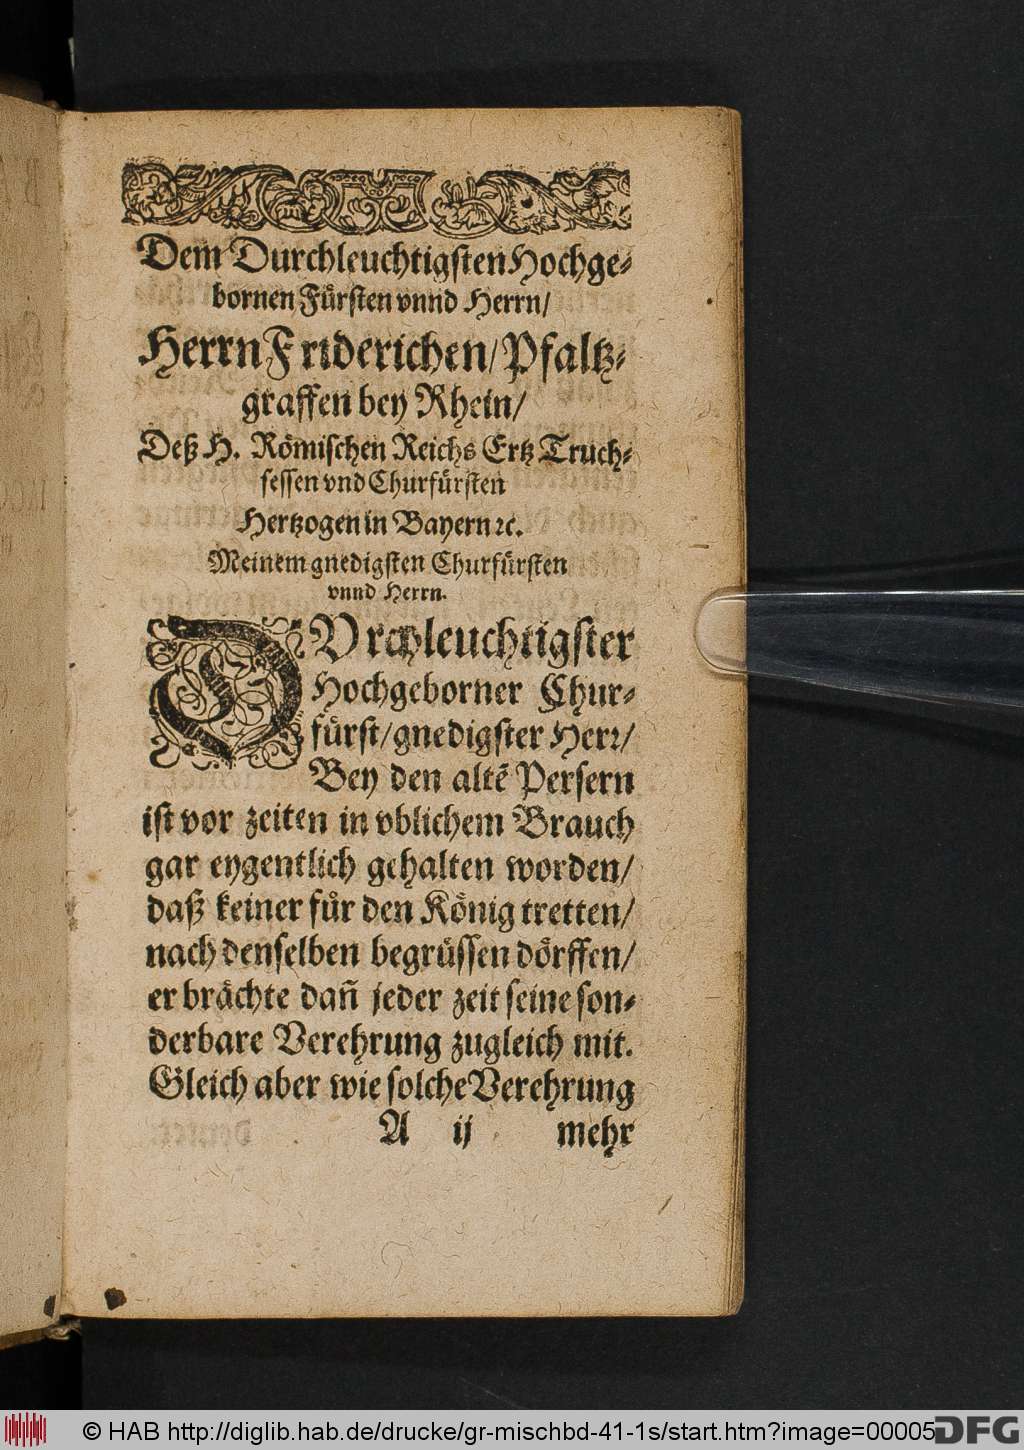 Dem Durchleuchtigsten Hochge⸗
bornen Fuͤrsten vnnd Herrn/
Herrn Friderichen/ Pfaltz⸗
graffen bey Rhein/
Deß H. Roͤmischen Reichs Ertz Truch⸗
sessen vnd Churfuͤrsten
Hertzogen in Bayern ꝛc.
Meinem gnedigsten Churfuͤrsten
vnnd Herrn.
DVrchleuchtigster
Hochgeborner Chur⸗
fuͤrst/ gnedigster Herꝛ/
Bey den altẽ Persern
ist vor zeiten in vblichem Brauch
gar eygentlich gehalten worden/
daß keiner fuͤr den Koͤnig tretten/
nach denselben begruͤssen doͤrffen/
er braͤchte dañ jeder zeit seine son⸗
derbare Verehrung zugleich mit.
Gleich aber wie solche Verehrung
A ij mehr
© HAB http://diglib.hab.de/drucke/gr-mischbd-41-1s/start.htm?image=00005
DFG